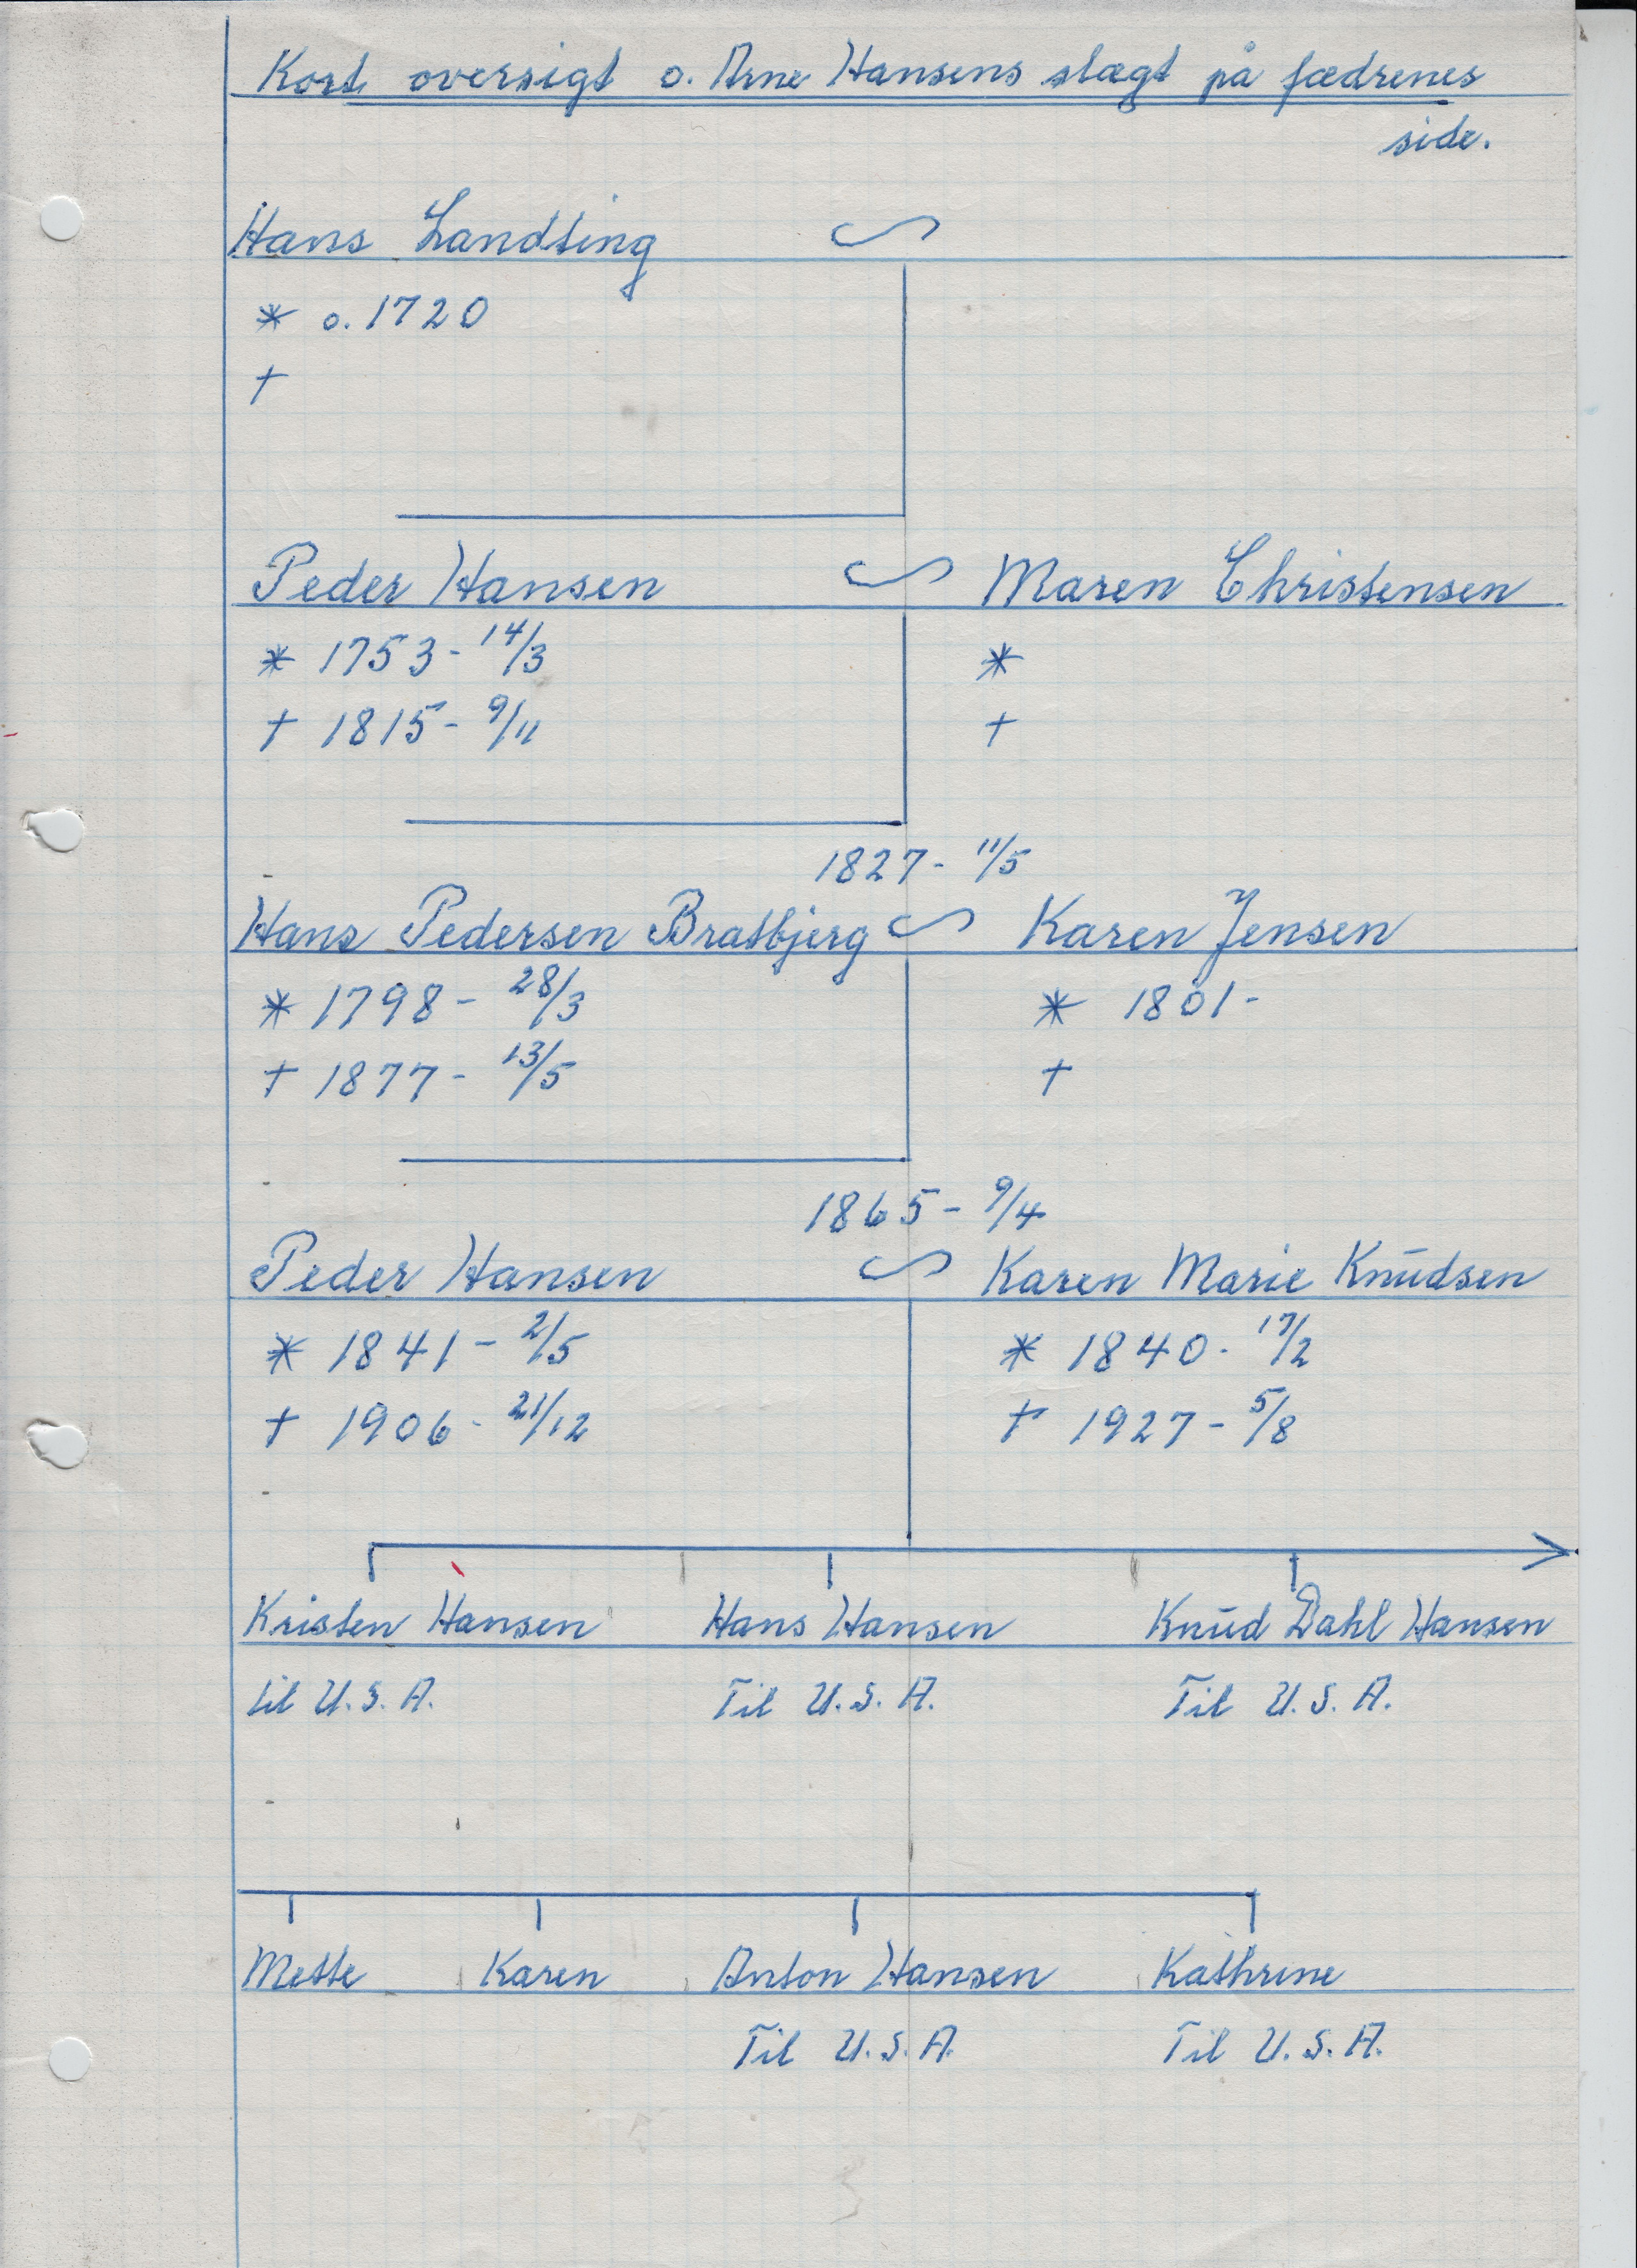 Kort oversigt o. Arne Hansens slægt på fædrenes
side.
Hans Landting
* o. 1720
†
Peder Hansen Maren Christensen
* 1753 - 14/3 *
† 1815 - 9/11 †
1827 - 11/5
Hans Pedersen Bratbjerg Karen Jensen
* 1798 - 28/3 * 1801 -
† 1877 - 13/5 †
1865 - 9/4
Peder Hansen Karen Marie Knŭdsen
* 1841 - 2/5 * 1840 - 17/2
† 1906 - 21/12 † 1927 - 5/8
Kristen Hansen Hans Hansen Knŭd Dahl Hansen
til U.S.A. Til U.S.A. Til U.S.A.
Mette Karen Anton Hansen Kathrine
Til U.S.A. Til U.S.A.